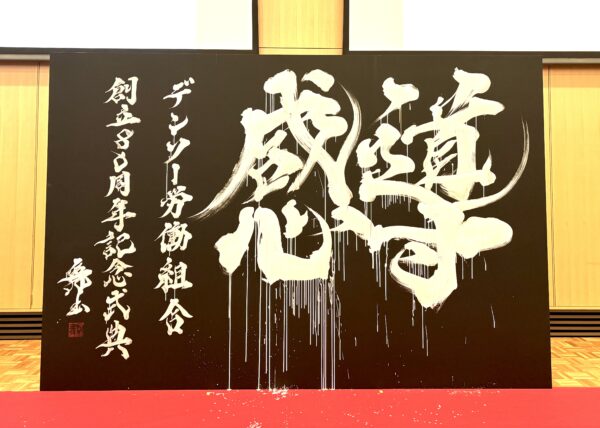 感導
デンソー労働組合
創立80周年記念式典